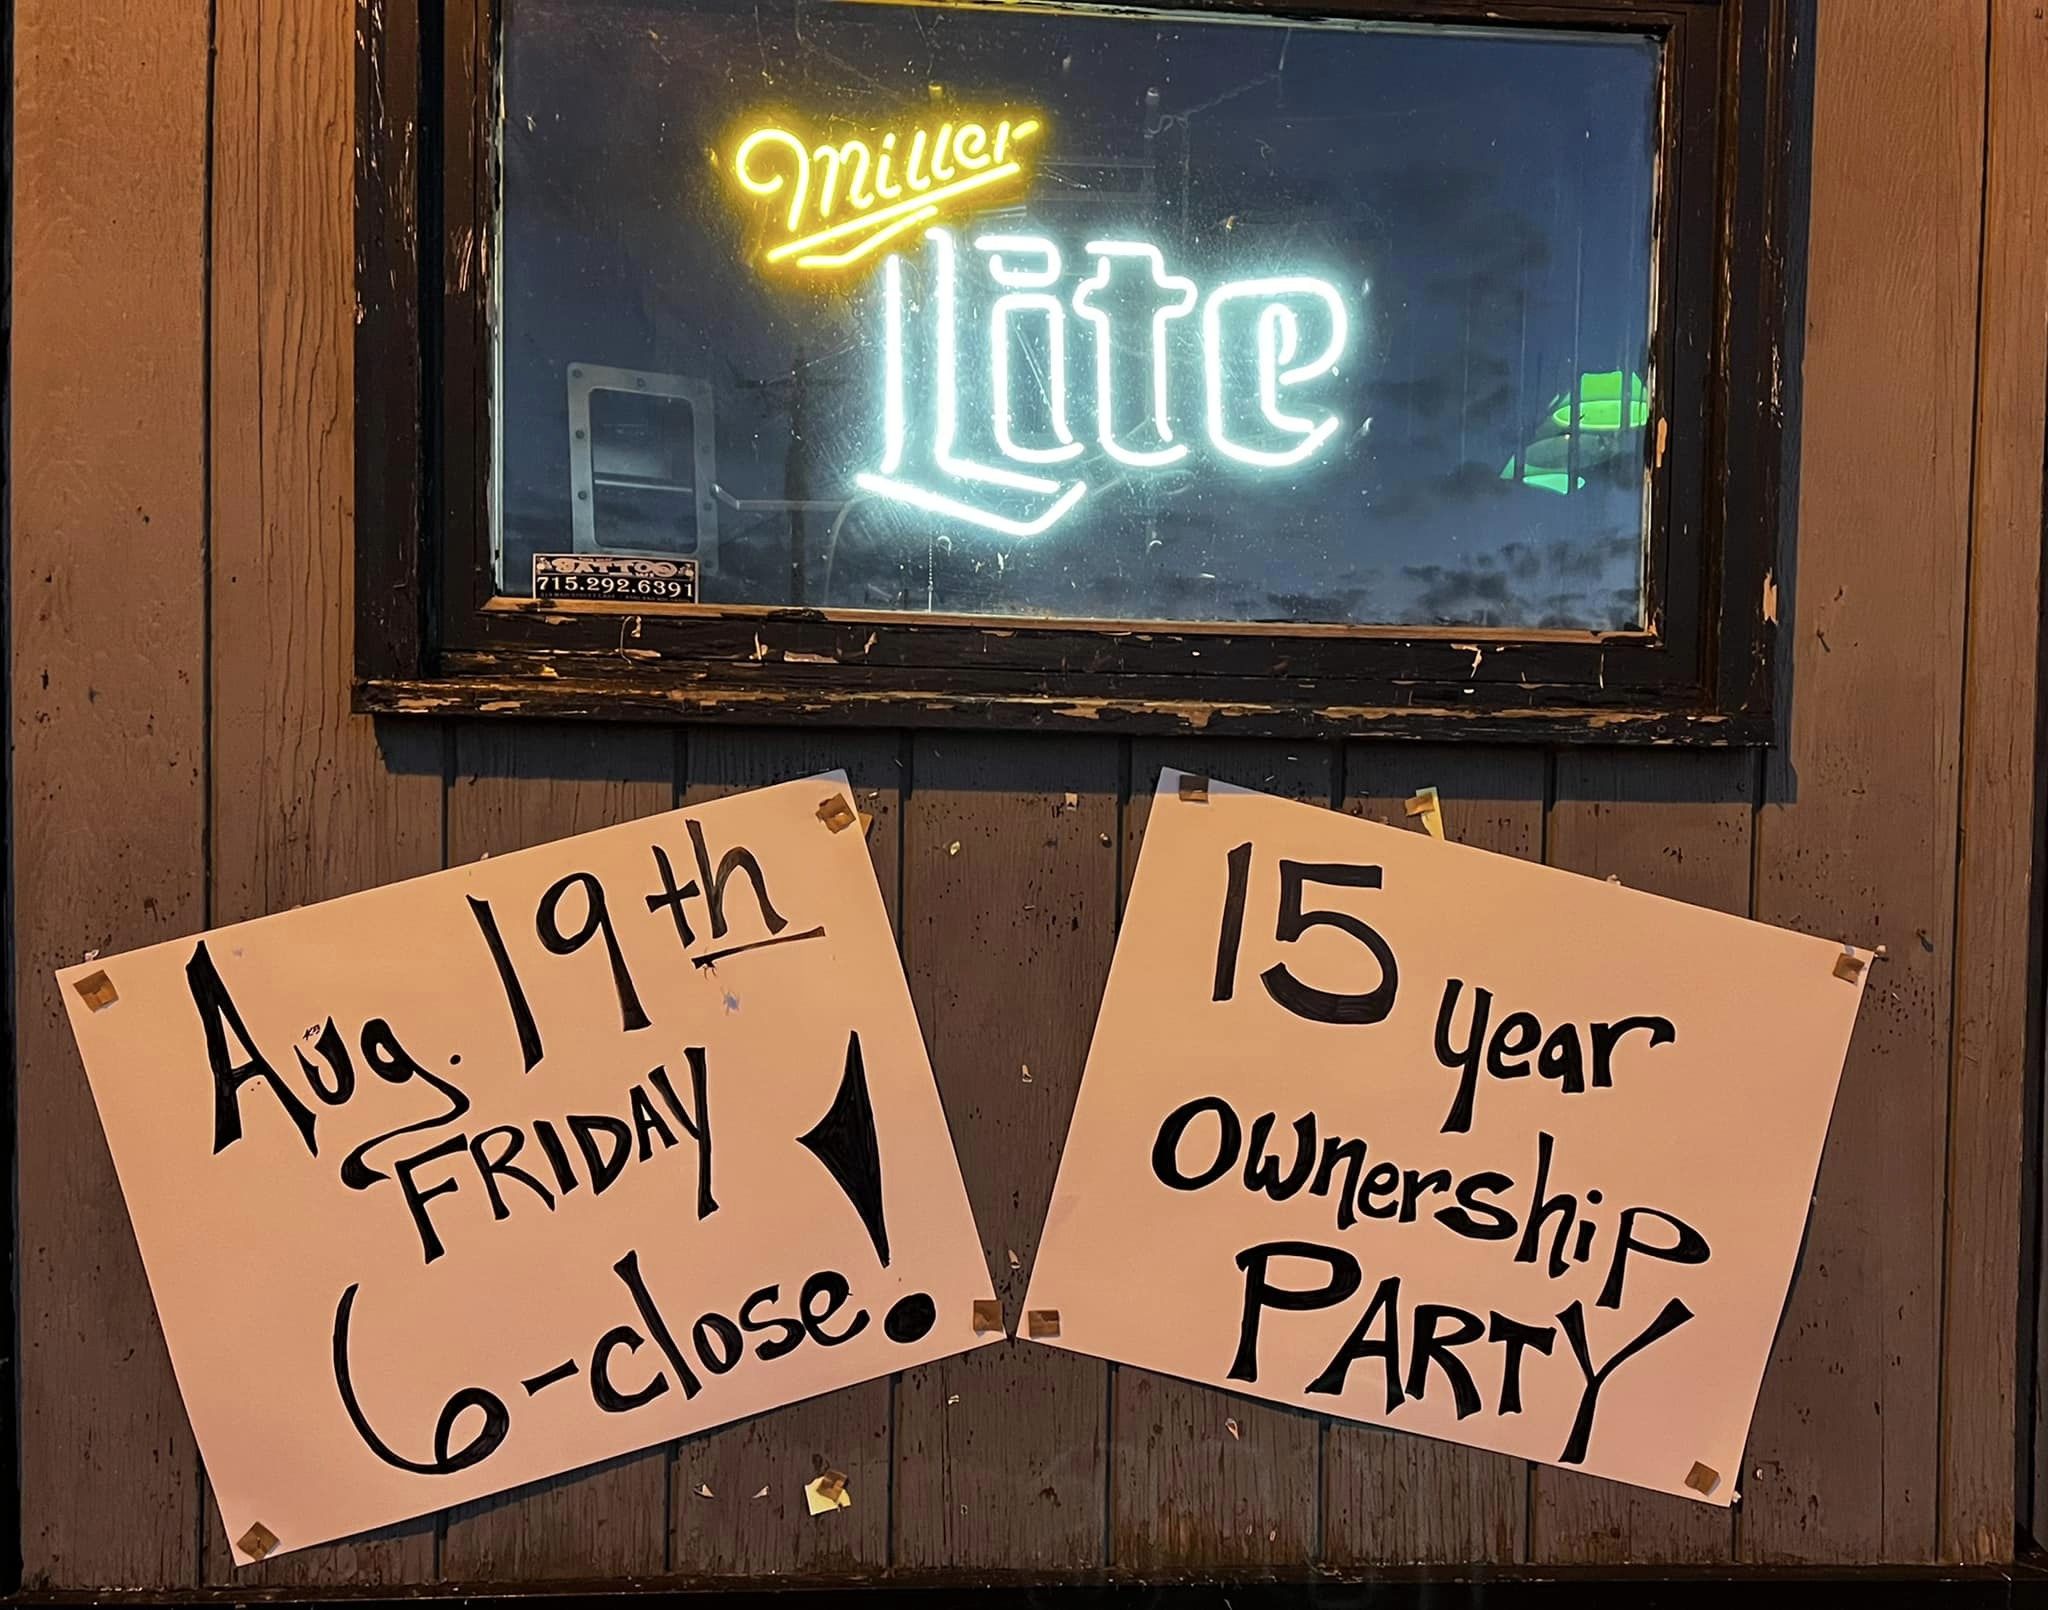 Miller
Lite
TATTOO
715.292.6391
Aug. 19th
FRIDAY
6-close!
15 year
Ownership
PARTY